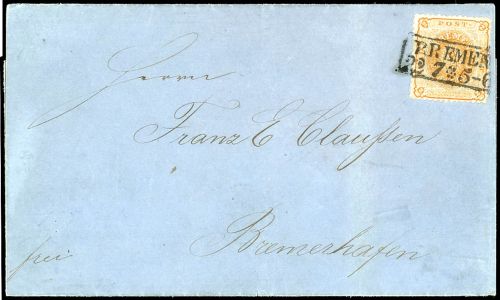 POST
BREMEN
22 7 * 5-6
Herrn
Franz E Claußen
Bremerhafen
frei